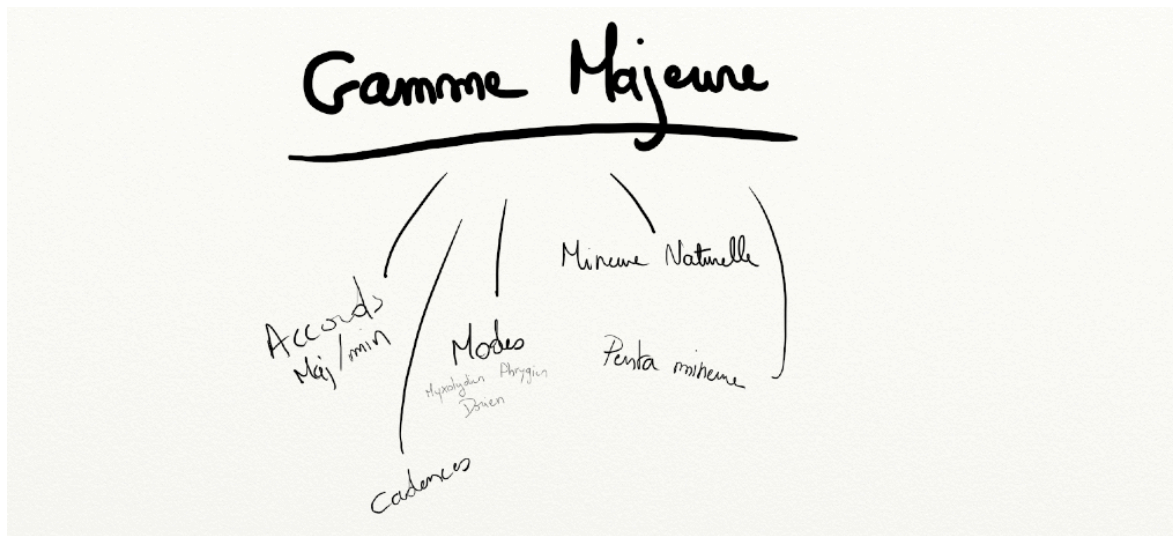 Gamme Majeure
Accords
Maj/min
Cadences
Modes
Myxolydien Phrygien
Dorien
Mineure Naturelle
Penta mineure